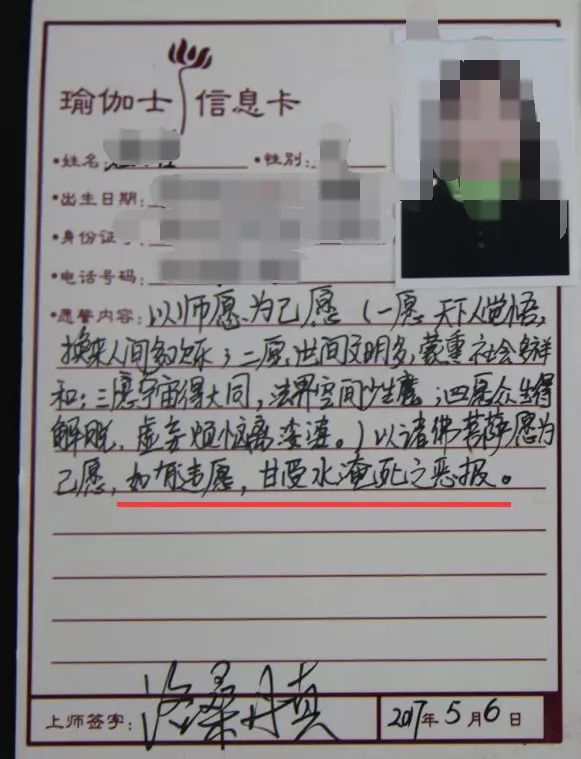 瑜伽士 信息卡
•姓名: •性别:
•出生日期:
•身份证号
•电话号码:
•愿誓内容: 以师愿为己愿（一愿天下人觉悟，
换来人间多欢乐；二愿世间文明多，蒙熏社会多祥
和；三愿宇宙得大同，法界空间少生魔；四愿众生得
解脱，虚妄烦恼离娑婆。）以诸佛菩萨愿为
己愿，如有违愿，甘受水淹死之恶报。
上师签字: 洛桑丹真 2017年5月6日